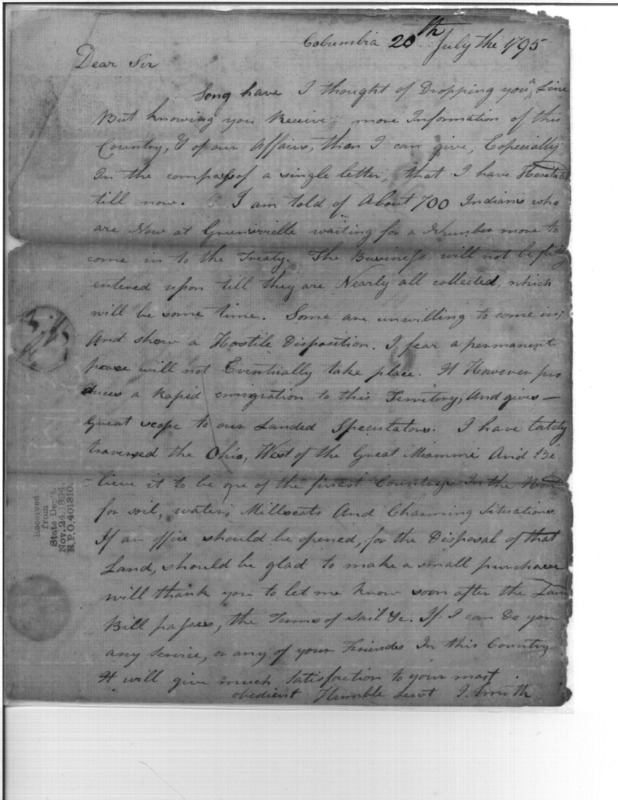 Columbia 20th July the 1795
Dear Sir
Long have I thought of Dropping you a Line
But knowing you Receive more Information of this
Country, & of our Affairs, than I can give, Especially
In the compass of a single letter, that I have
till now. I am told of About 700 Indians who
are Now at Greenville waiting for a Number more to
come in to the Treaty. The Business will not be
entered upon till they are Nearly all collected, which
will be some time. Some are unwilling to come in,
And show a Hostile Disposition. I fear a permanent
peace will not Eventually take place. It However pro
duces a Raped emigration to this Territory, And gives –
Great scope to our Landed Speculators. I have lately
traversed the Ohio, West of the Great Miamme And Be
lieve it to be one of the finest Countrys In the
for soil, water, Millseats And Charming Situations
If an office should be opened, for the Disposal of that
Land, should be glad to make a small purchase
will thank you to let me know soon after the
Bill passes, the Terms of Sail &c. If I can Do you
any Service, or any of your Friends In this Country
It will give much Satisfaction to your most
obedient Humble Servt J. Smith
Received
from
State Dep't,
R.P.O. 401310.